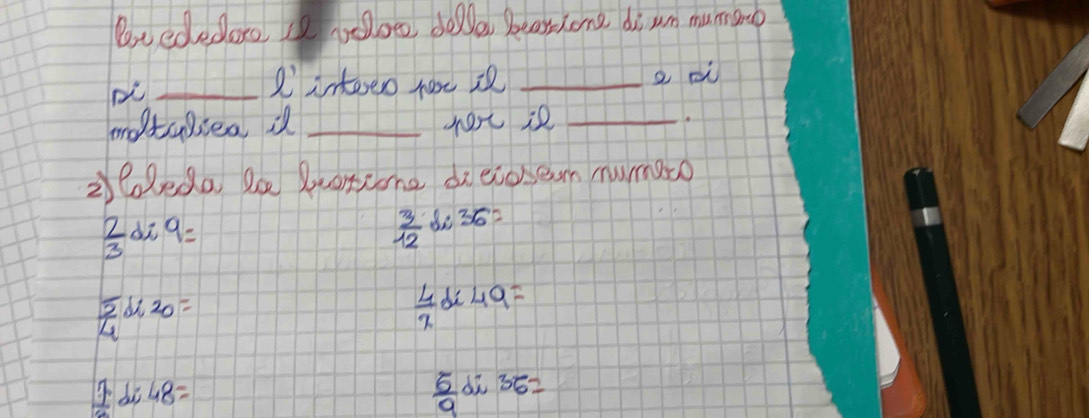 Per calcolare il valore della frazione di un numero
si _____ l'intero per il _____ e si
moltiplica il _____ per il _____.
2) Calcola la frazione di ciascun numero
2/3 di 9=
3/12 di 36=
5/4 di 20=
4/7 di 49=
di 48=
5/9 di 36=